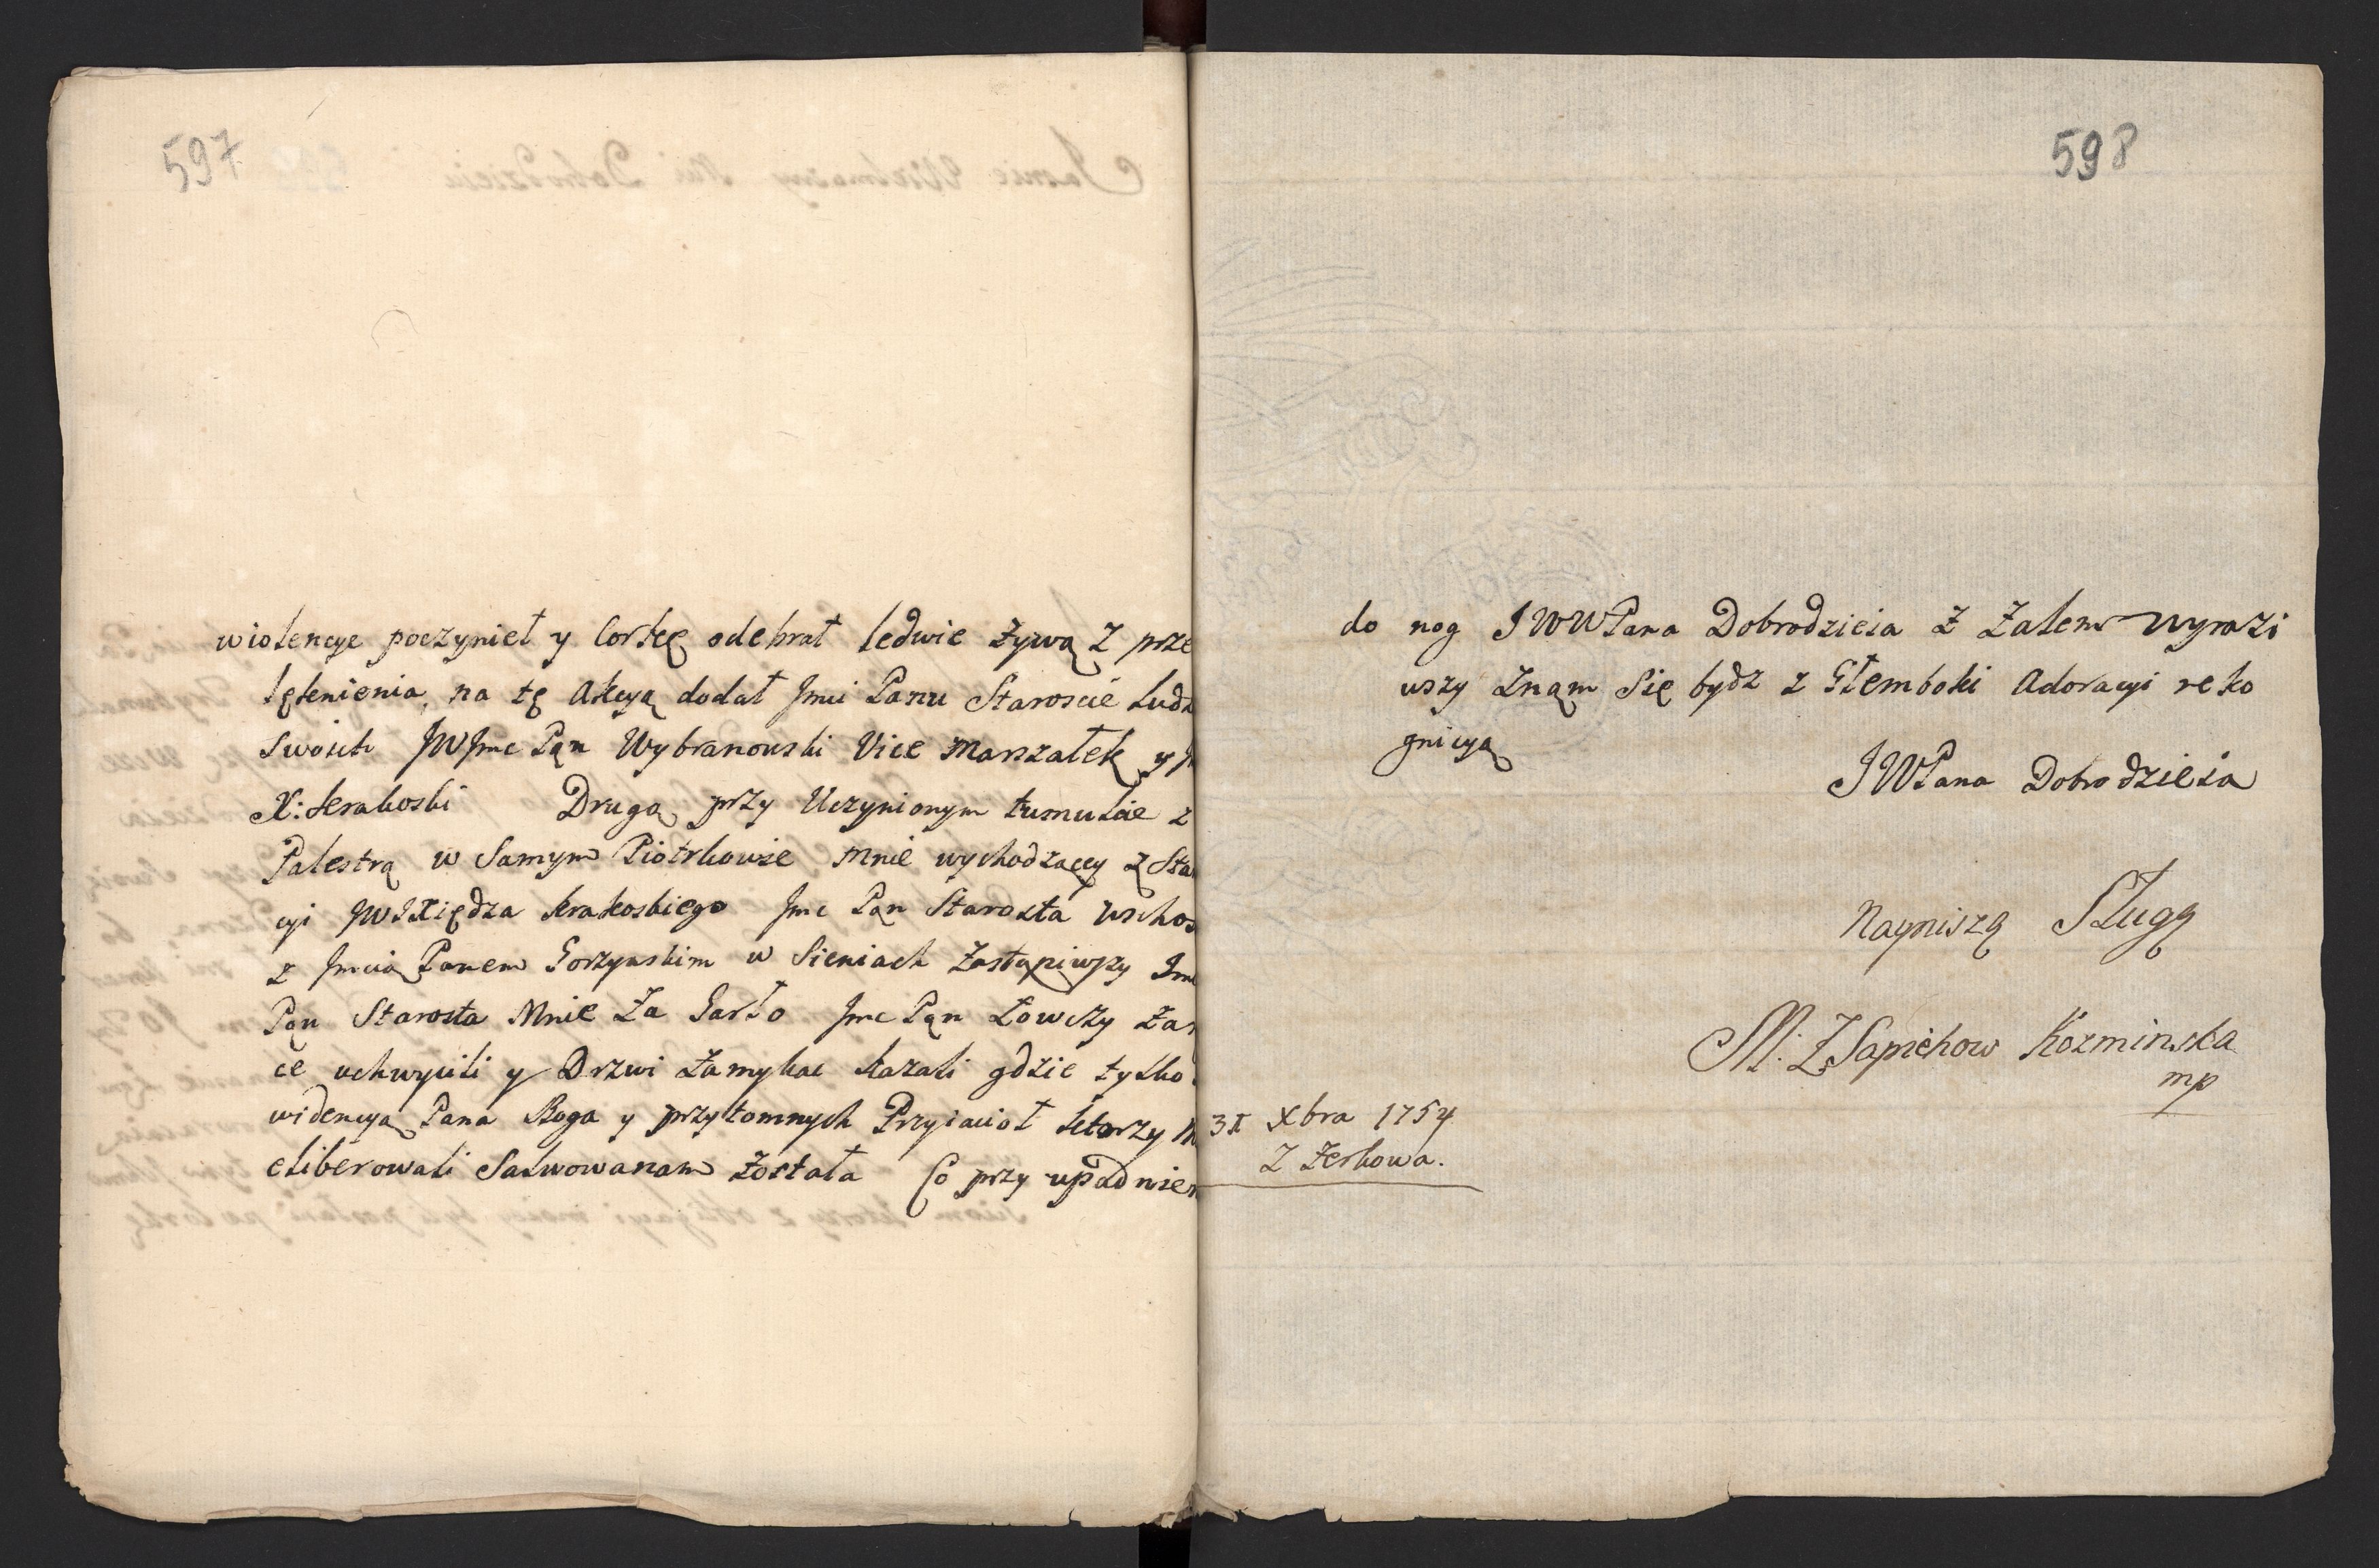 597
wiolencye poczynieł y Corkę odebrał ledwie żywą z prze
lęknienia, na tę akcyą dodał Jmci Panu Staroscie ludz
Swoich JWJmc Pąn Wybranouski Vice Marszałek y
X: Krakoski Drugą przy Uczynionym tumulcie z
Palestrą w Samym Piotrkowie mnie wychodzący z Sta
cyi JWJXiędza Krakoskiego Jmc Pąn Starosta Wschos
z Jmcią Panem Gorzynskim w Sieniach Zastąpiwszy Jmc
Pąn Starosta Mnie Za Garło Jmc Pąn Łowczy Za
ce uchwycili y Drzwi Zamykac kazali gdzie tylko
widencyą Pana Boga y przytomnych Przyiacioł ktorzy
eliberowali Salwowanam Została Co przy upadnien
598
do nog JWWPana Dobrodzieia z Zalem wyrazi
wszy Znąm Się bydz z Głemboki Adoracyi reko
gnicyą
JWPana Dobrodzieia
Nayniszą Sługą
M: Z Sapiehow Kozminska
mp
31 Xbra 1754
Z Zerkowa.